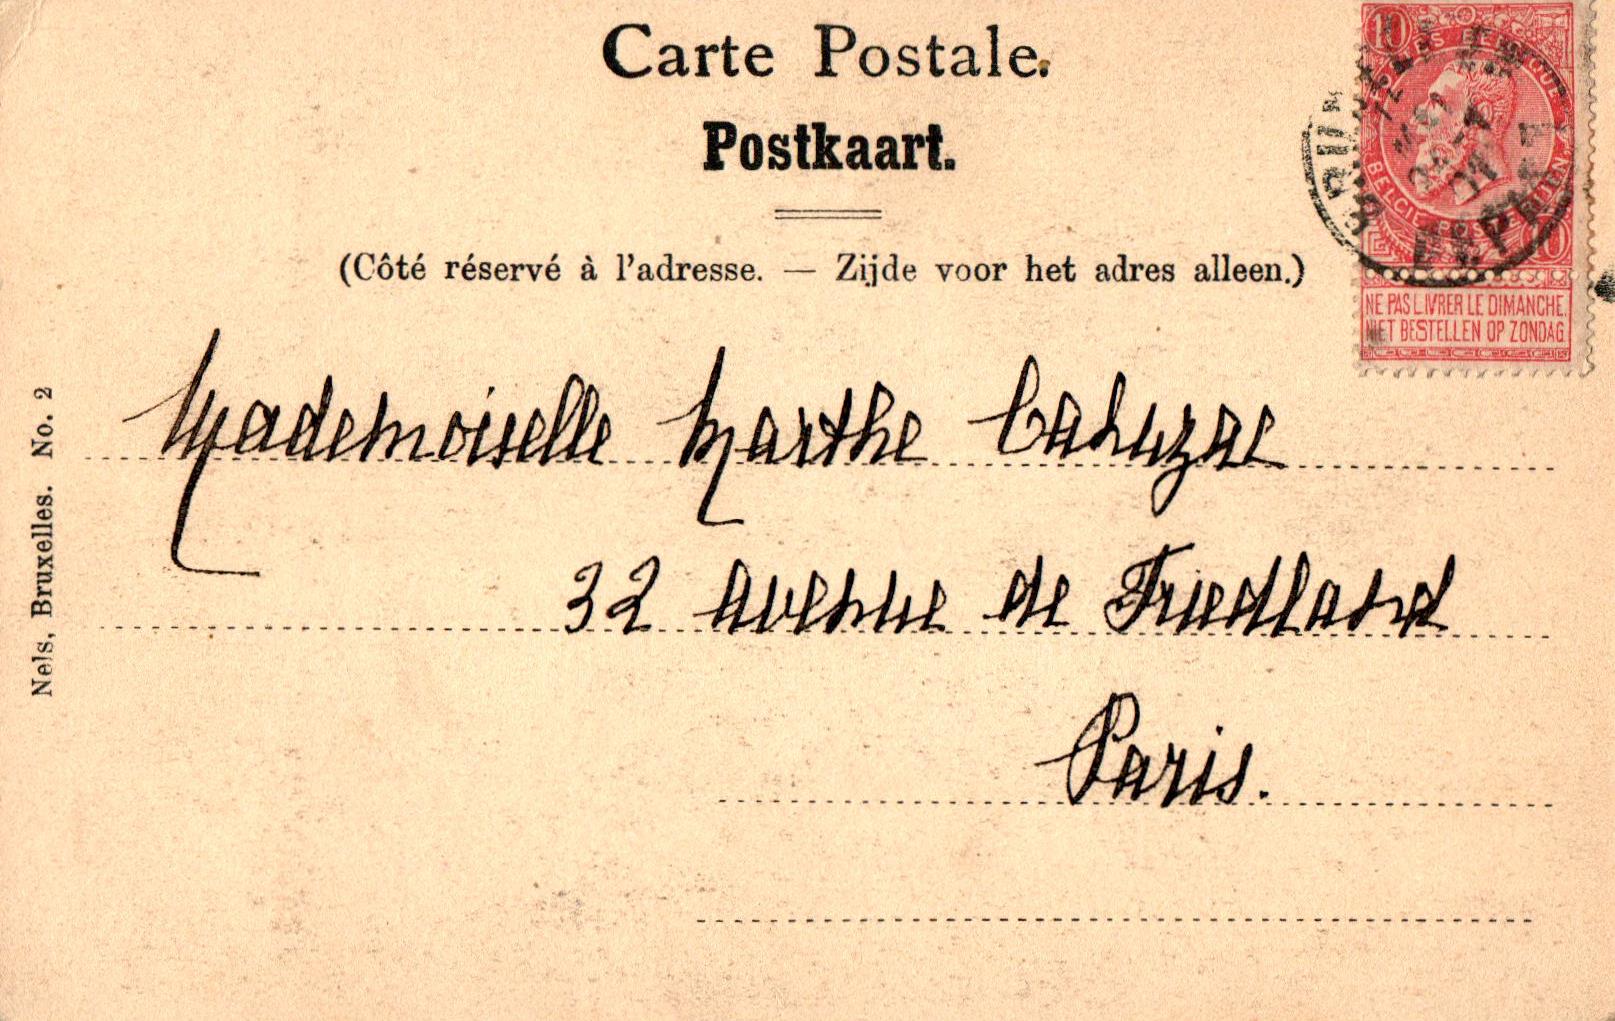 Carte Postale.
Postkaart.
(Côté réservé à l'adresse. — Zijde voor het adres alleen.)
10
NE PAS LIVRER LE DIMANCHE.
NIET BESTELLEN OP ZONDAG
Mademoiselle Marthe Cahuzac
32 Avenue de Friedland
Paris.
Nels, Bruxelles. No. 2